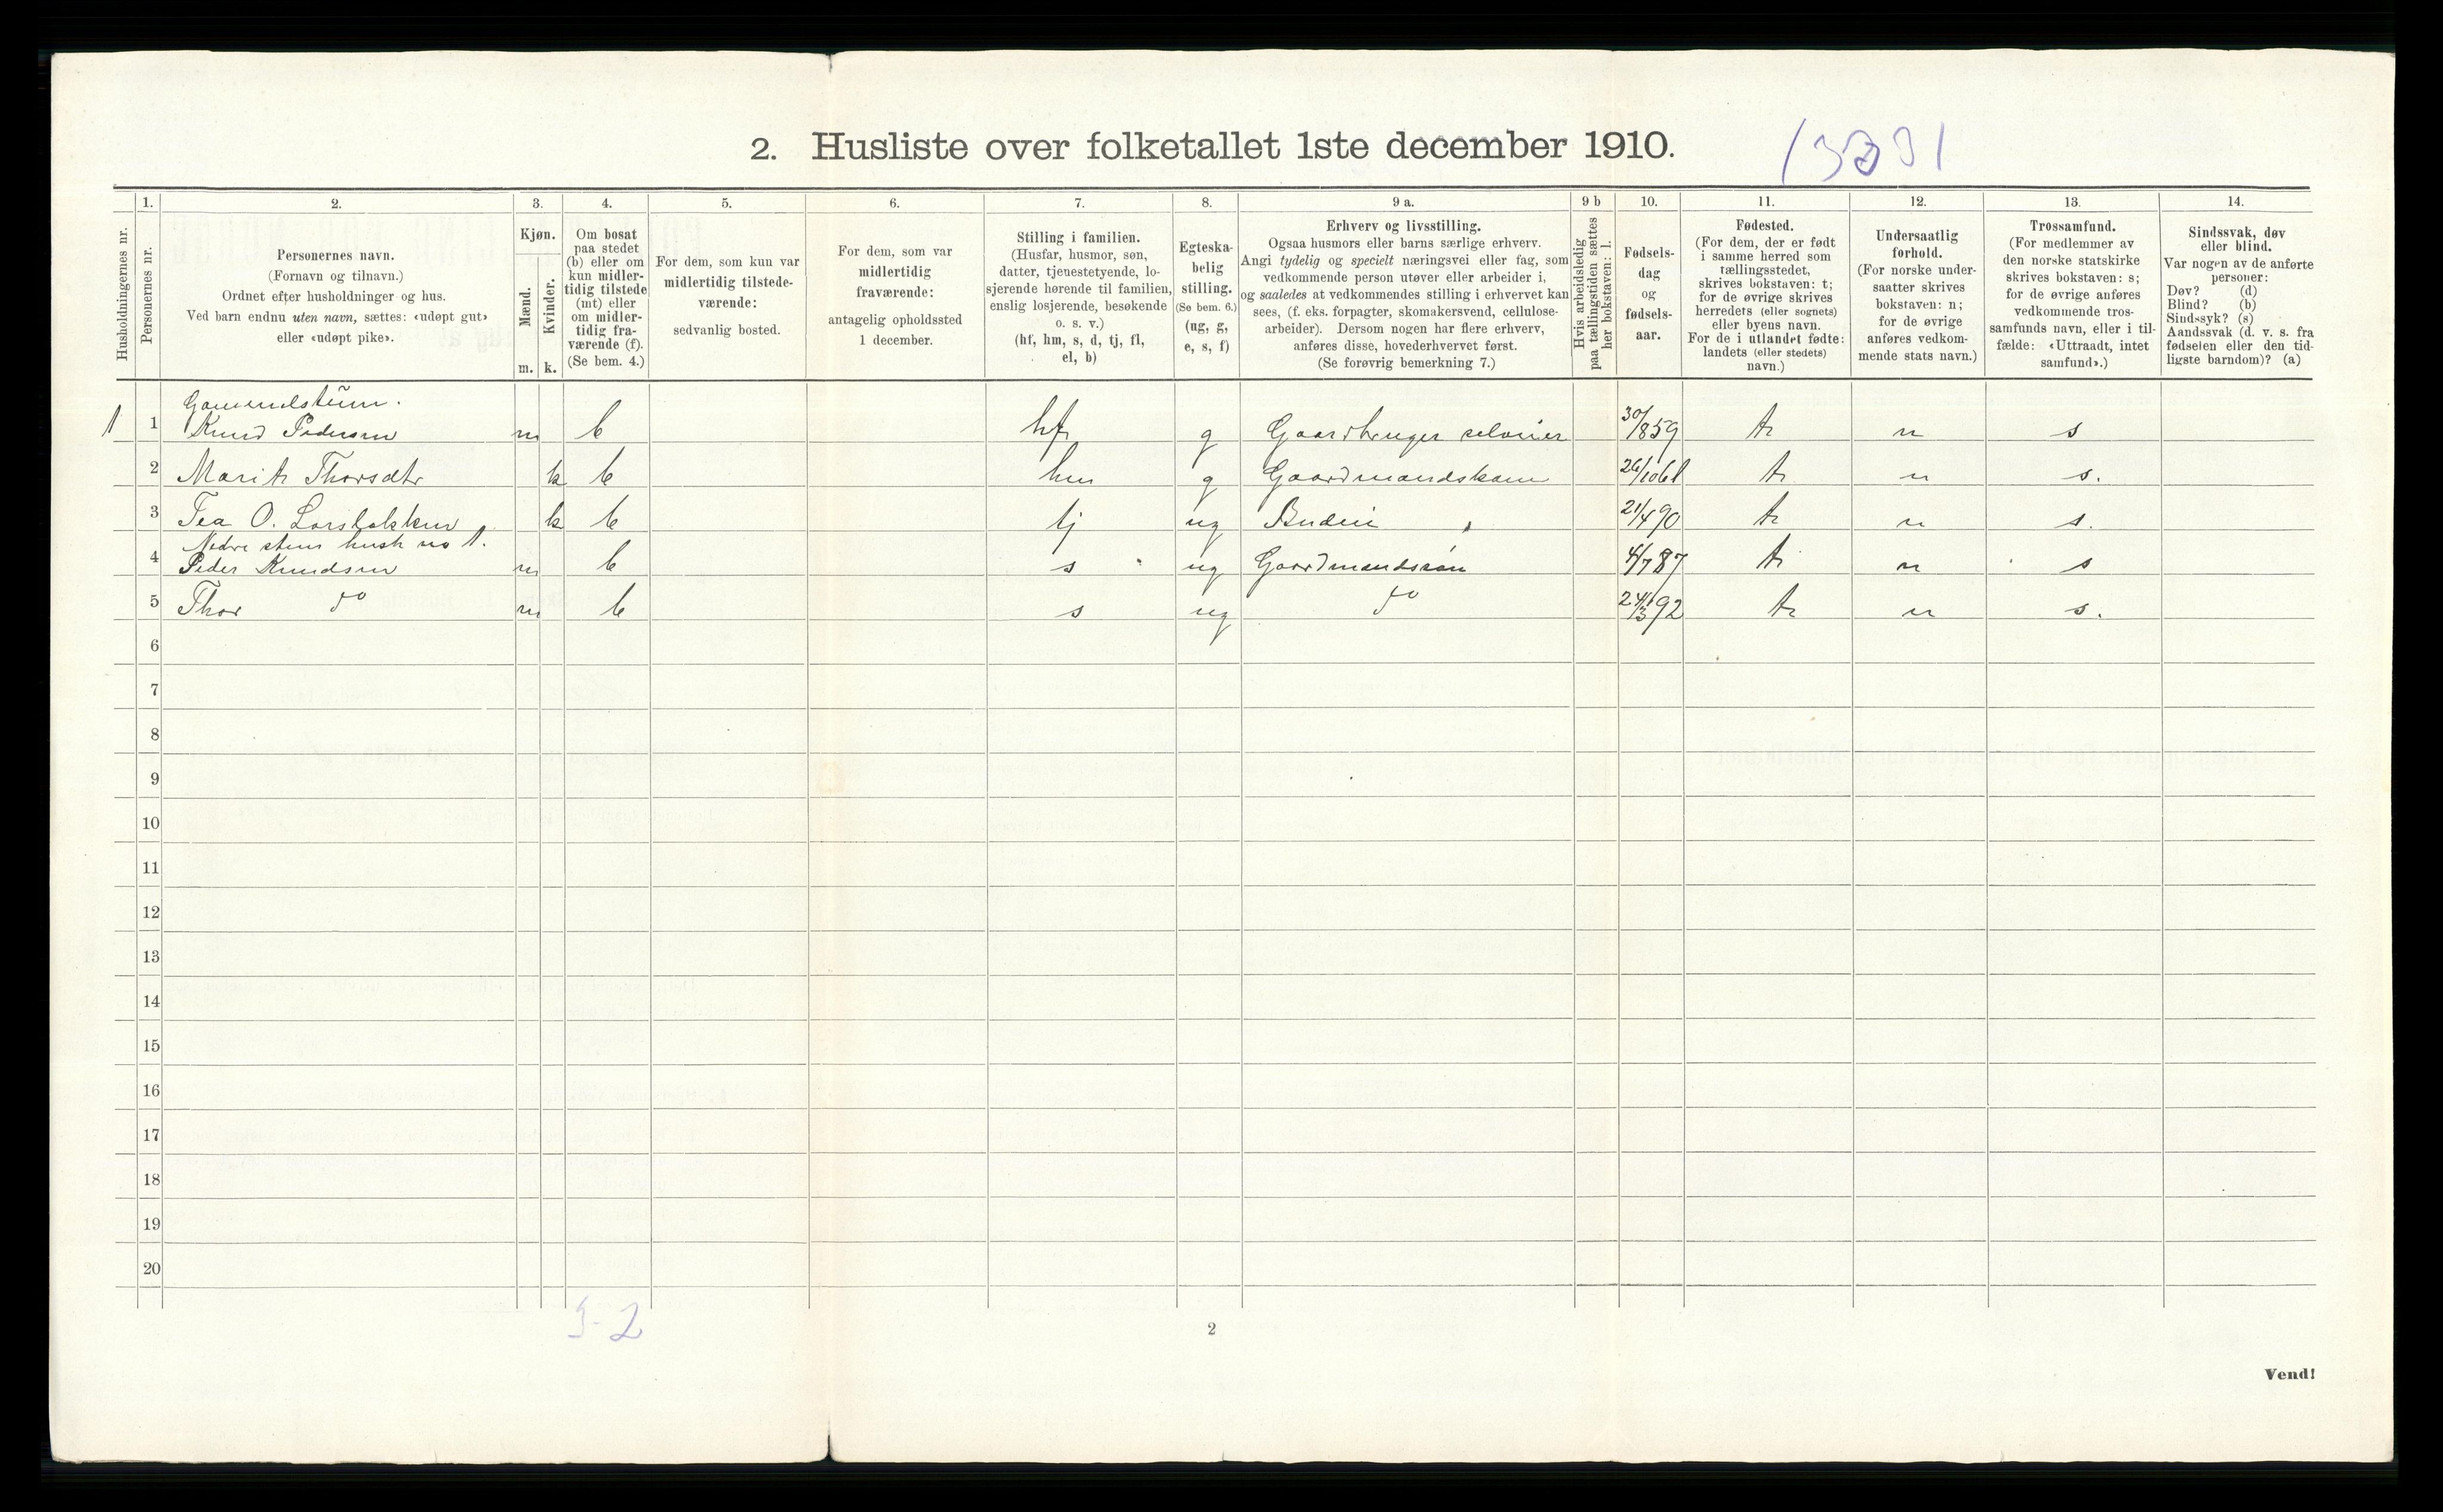 2. Husliste over folketallet 1ste december 1910.
1. 2. 3. 4. 5. 6. 7. 8. 9 a. 9 b 10. 11. 12. 13. 14.
Husholdningernes nr.
Personernes nr.
Personernes navn.
(Fornavn og tilnavn.)
Ordnet efter husholdninger og hus.
Ved barn endnu uten navn, sættes: «udøpt gut»
eller «udøpt pike».
Kjøn.
Mænd.
Kvinder.
m. k.
Om bosat
paa stedet
(b) eller om
kun midler-
tidig tilstede
(mt) eller
om midler-
tidig fra-
værende (f).
(Se bem. 4.)
For dem, som kun var
midlertidig tilstede-
værende:
sedvanlig bosted.
For dem, som var
midlertidig
fraværende:
antagelig opholdssted
1 december.
Stilling i familien.
(Husfar, husmor, søn,
datter, tjenestetyende, lo-
sjerende hørende til familien,
enslig losjerende, besøkende
o. s. v.)
(hf, hm, s, d, tj, fl,
el, b)
Egteska-
belig
stilling.
(Se bem. 6.)
(ug, g,
e, s, f)
Erhverv og livsstilling.
Ogsaa husmors eller barns særlige erhverv.
Angi tydelig og specielt næringsvei eller fag, som
vedkommende person utøver eller arbeider i,
og saaledes at vedkommendes stilling i erhvervet kan
sees, (f. eks. forpagter, skomakersvend, cellulose-
arbeider). Dersom nogen har flere erhverv,
anføres disse, hovederhvervet først.
(Se forøvrig bemerkning 7.)
Hvis arbeidsledig
paa tællingstiden sættes
her bokstaven: l.
Fødsels-
dag
og
fødsels-
aar.
Fødested.
(For dem, der er født
i samme herred som
tællingsstedet,
skrives bokstaven: t;
for de øvrige skrives
herredets (eller sognets)
eller byens navn.
For de i utlandet fødte:
landets (eller stedets)
navn.)
Undersaatlig
forhold.
(For norske under-
saatter skrives
bokstaven: n;
for de øvrige
anføres vedkom-
mende stats navn.)
Trossamfund.
(For medlemmer av
den norske statskirke
skrives bokstaven: s;
for de øvrige anføres
vedkommende tros-
samfunds navn, eller i til-
fælde: «Uttraadt, intet
samfund».)
Sindssvak, døv
eller blind.
Var nogen av de anførte
personer:
Døv? (d)
Blind? (b)
Sindssyk? (s)
Aandssvak (d. v. s. fra
fødselen eller den tid-
ligste barndom)? (a)
1 1 Knud Pedersen m b hf g Gaardbruger selveier 30/8 59 t n s
2 Marit Thorsdtr k b hm g Gaardmandskone 26/10 61 t n s.
3 Tea O. k b tj ug Budeie 21/4 90 t n s.
Nedre husk no 1.
4 Peder Knudsen m b s ug Gaardmandssøn 4/7 87 t n s
5 Thor do m b s ug do 24/3 92 t n s.
6
7
8
9
10
11
12
13
14
15
16
17
18
19
20
3-2
2
Vend!